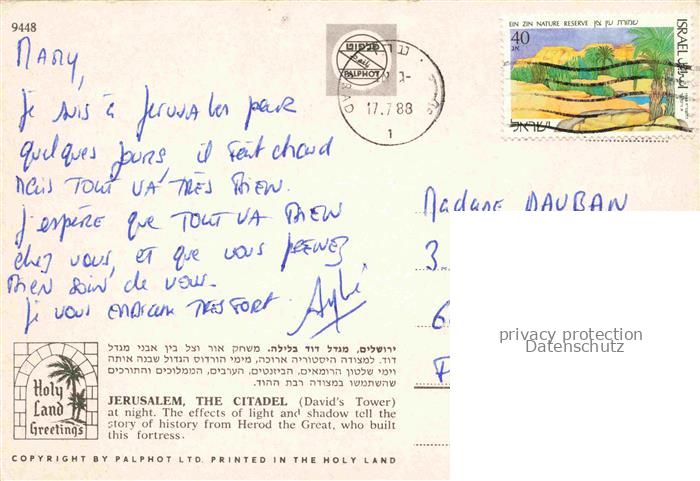 9448
Mamy,
Je suis à Jerusalem pour
quelques jours, il fait chaud
mais TOUT VA TRÈS BIEN.
J'espère que TOUT VA BIEN
chez vous, et que vous prenez
bien soin de vous.
Je vous embrasse TRES FORT.
פלפוט
PALPHOT
17.7.88
1
EIN ZIN NATURE RESERVE שמורת עין צין
40
אג
ISRAEL
ישראל
Madame DAUBAN
3
6
F
privacy protection
Datenschutz
ירושלים, מגדל דוד בלילה. משחק אור וצל בין אבני מגדל
דוד. למצודה היסטוריה ארוכה, מימי הורדוס הגדול שבנה אותה
וימי שלטון הרומאים, הביזנטים, הערבים, הממלוכים והתורכים
שהשתמשו במצודה רבת ההוד.
Holy
Land
Greetings
JERUSALEM, THE CITADEL (David's Tower)
at night. The effects of light and shadow tell the
story of history from Herod the Great, who built
this fortress.
COPYRIGHT BY PALPHOT LTD. PRINTED IN THE HOLY LAND